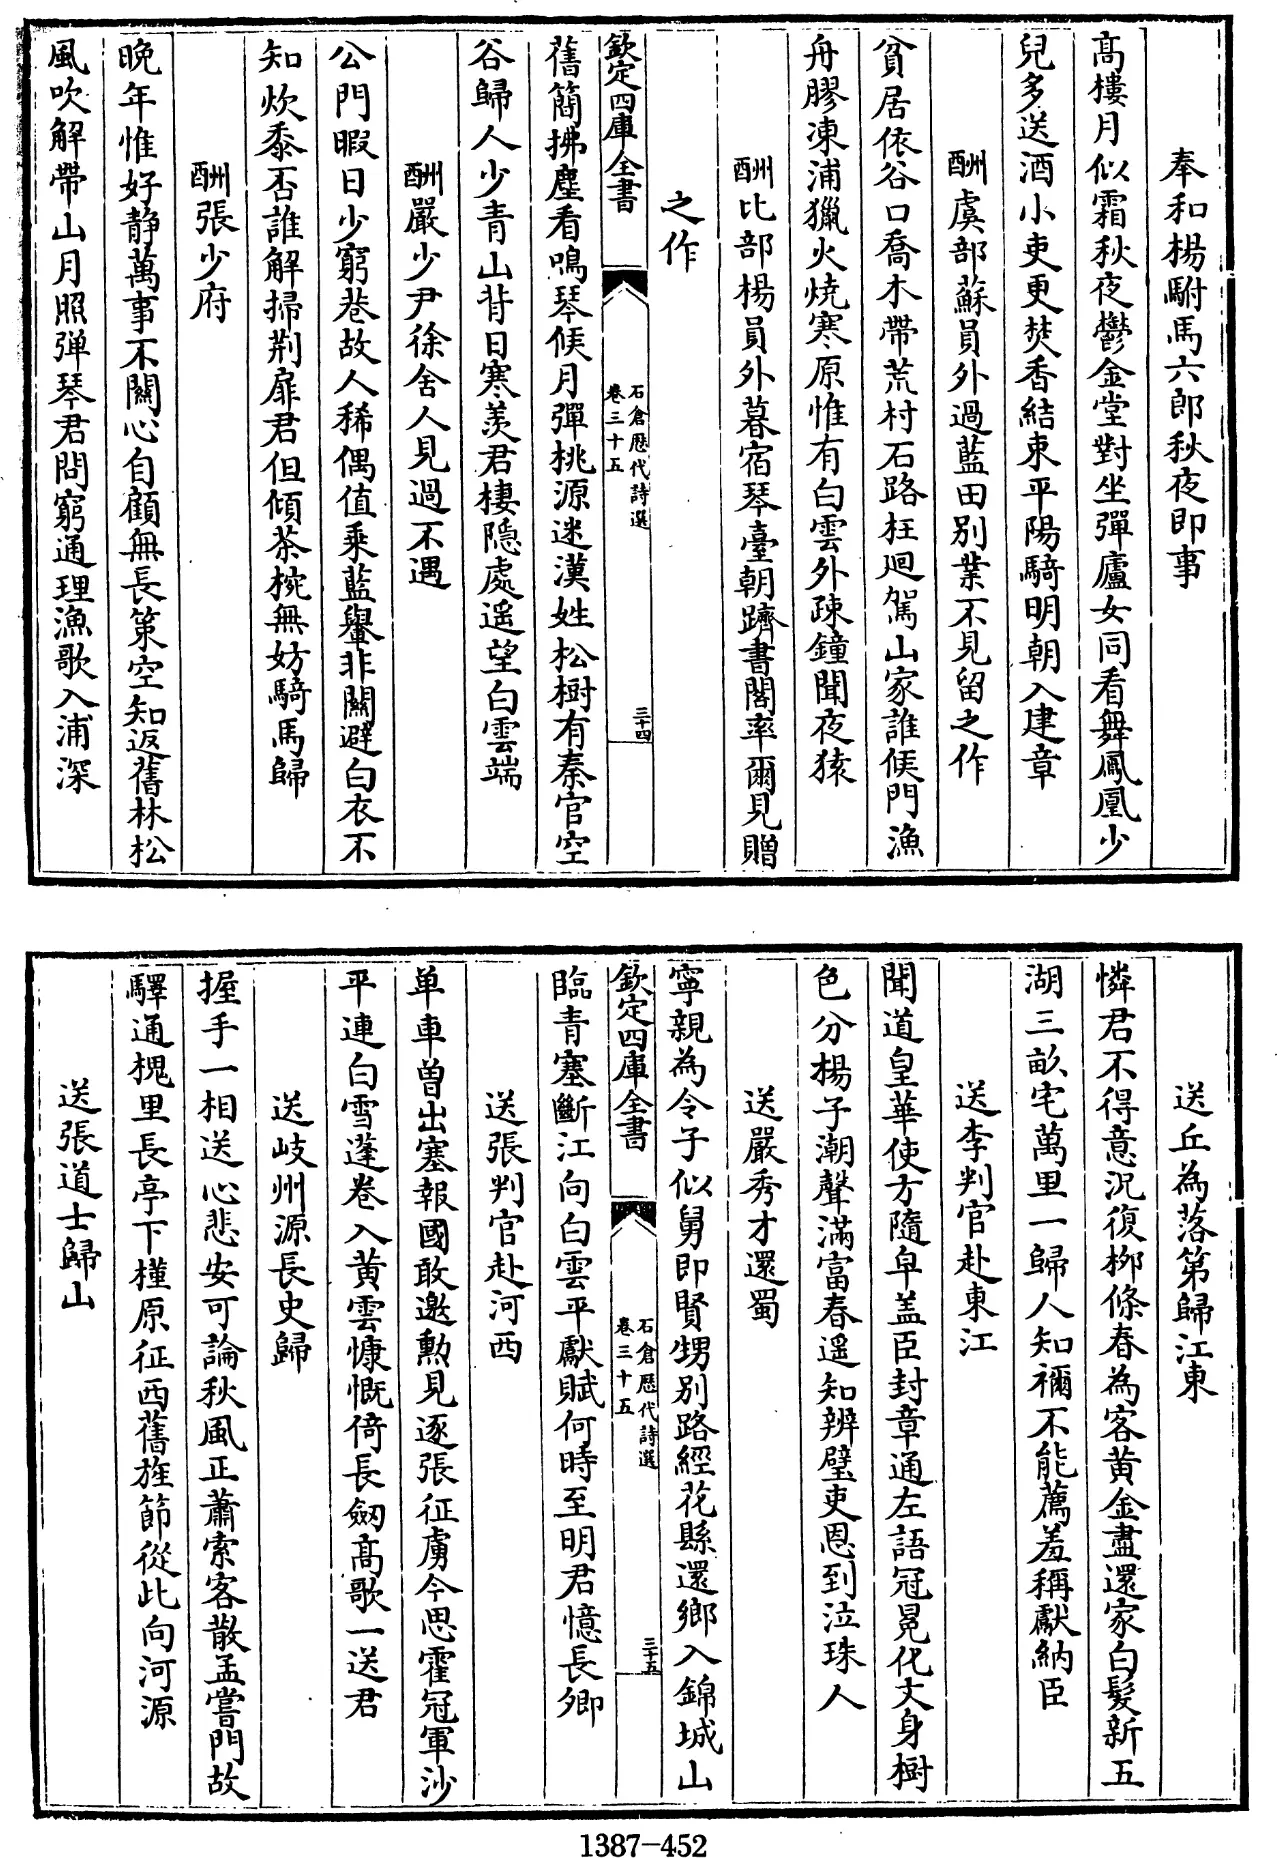 奉和楊駙馬六郎秋夜即事
髙樓月似霜秋夜鬱金堂對坐彈廬女同看舞鳳凰少
兒多送酒小吏更焚香結束平陽騎明朝入建章
酬虞部蘇員外過藍田别業不見留之作
貧居依谷口喬木帶荒村石路枉迴駕山家誰候門漁
舟膠凍浦獵火燒寒原惟有白雲外疎鐘聞夜猿
酬比部楊員外暮宿琴臺朝躋書閣率爾見贈
之作
欽定四庫全書
石倉歷代詩選
卷三十五
三十四
舊簡拂塵看鳴琴候月彈桃源迷漢姓松樹有秦官空
谷歸人少青山背日寒羨君棲隐處遥望白雲端
酬嚴少尹徐舍人見過不遇
公門暇日少窮巷故人稀偶值乘藍轝非關避白衣不
知炊黍否誰解掃荆扉君但傾茶椀無妨騎馬歸
酬張少府
晩年惟好静萬事不關心自顧無長策空知返舊林松
風吹解帶山月照弹琴君問窮通理漁歌入浦深
送丘為落第歸江東
憐君不得意況復栁條春為客黄金盡還家白髮新五
湖三畝宅萬里一歸人知禰不能薦羞稱獻納臣
送李判官赴東江
聞道皇華使方隨皁盖臣封章通左語冠冕化文身樹
色分揚子潮聲滿富春遥知辨璧吏恩到泣珠人
送嚴秀才還蜀
寧親為令子似舅即賢甥别路經花縣還鄉入錦城山
欽定四庫全書
石倉歷代詩選
卷三十五
三十五
臨青塞斷江向白雲平獻賦何時至明君憶長卿
送張判官赴河西
单車曽出塞報國敢邀勲見逐張征虜今思霍冠軍沙
平連白雪蓬卷入黄雲慷慨倚長劒髙歌一送君
送岐州源長史歸
握手一相送心悲安可論秋風正蕭索客散孟嘗門故
驛通槐里長亭下槿原征西舊旌節從此向河源
送張道士歸山
1387-452